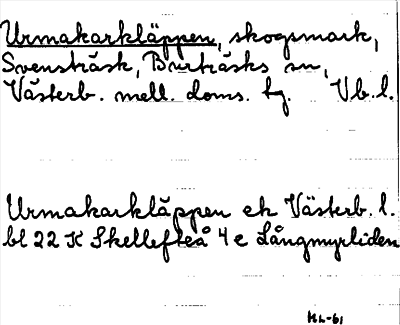 Urmakarkläppen, skogsmark,
Svensträsk, Burträsks sn,
Västerb. mell. doms. tg. Vb. l.
Urmakarkläppen ek Västerb. l.
bl 22 K Skellefteå 4 e Långmyrliden
HL-61